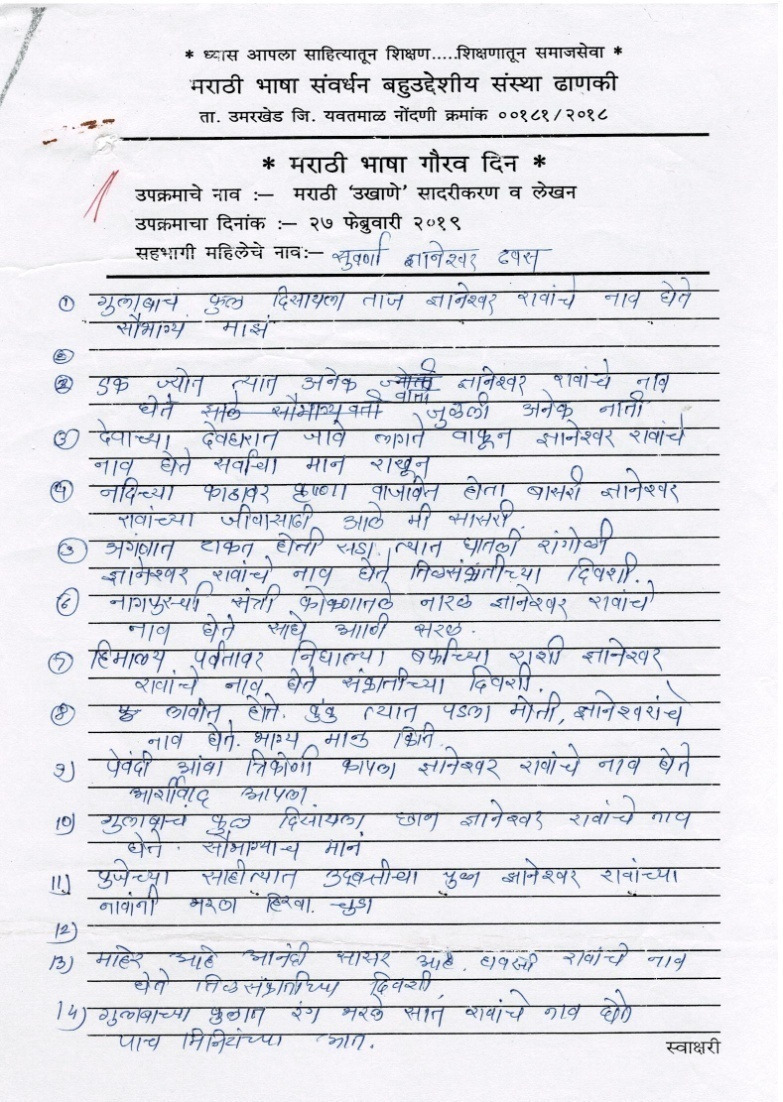 * ध्यास आपला साहित्यातून शिक्षण.....शिक्षणातून समाजसेवा *
मराठी भाषा संवर्धन बहुउद्देशीय संस्था ढाणकी
ता. उमरखेड जि. यवतमाळ नोंदणी क्रमांक ००१८१/२०१८
* मराठी भाषा गौरव दिन *
उपक्रमाचे नाव :– मराठी ‘उखाणे’ सादरीकरण व लेखन
उपक्रमाचा दिनांक :– २७ फेब्रुवारी २०१९
सहभागी महिलेचे नाव:– सुवर्णा ज्ञानेश्वर हवस
① गुलाबाचं फुल दिसायला ताजं ज्ञानेश्वर रावांचे नाव घेते
सौभाग्यं माझं
②
② एक ज्योत त्यात अनेक वाती ज्ञानेश्वर रावांचे नाव
घेते जुळली अनेक नाती
③ देवाच्या देवघरात जावे लागते वाकून ज्ञानेश्वर रावांचे
नाव घेते सर्वांचा मान राखून
④ नदिच्या काठावर कृष्णा वाजवित होता बासरी ज्ञानेश्वर
रावांच्या जीवासाठी आले मी सासरी.
⑤ अंगणात टाकत होती सडा. त्यात घातली रांगोळी
ज्ञानेश्वर रावांचे नाव घेते तिळसंक्रांतीच्या दिवशी.
⑥ नागपुरची संत्री कोकणातले नारळ ज्ञानेश्वर रावांचे
नाव घेते साधे आणी सरळ.
⑦ हिमालय पर्वतावर निघाल्या बर्फाच्या राशी ज्ञानेश्वर
रावांचे नाव घेते संक्रातीच्या दिवशी.
⑧ लावीत होते. कुंकु त्यात पडला मोती, ज्ञानेश्वरांचे
नाव घेते. भाग्य मानु किती.
9) पेवंदी आंबा त्रिकोणी कापला ज्ञानेश्वर रावांचे नाव घेते
आर्शीवाद आपला
10) गुलाबाच फुल दिसायला छान ज्ञानेश्वर रावांचे नाव
घेते. सौभाग्याच मान
11) पुजेच्या साहीत्यात उदबत्तीचा पुडा ज्ञानेश्वर रावांच्या
नावांनी भरला हिरवा. चुडा
12)
13) माहेर आहे आनंदी सासर आहे. हावसी रावांचे नाव
घेते तिळसंक्रातीच्या दिवशी.
14) गुलाबाच्या फुलात रंग भरले सात रावांचे नाव घेते
पाच मिनिटांच्या आत.
स्वाक्षरी